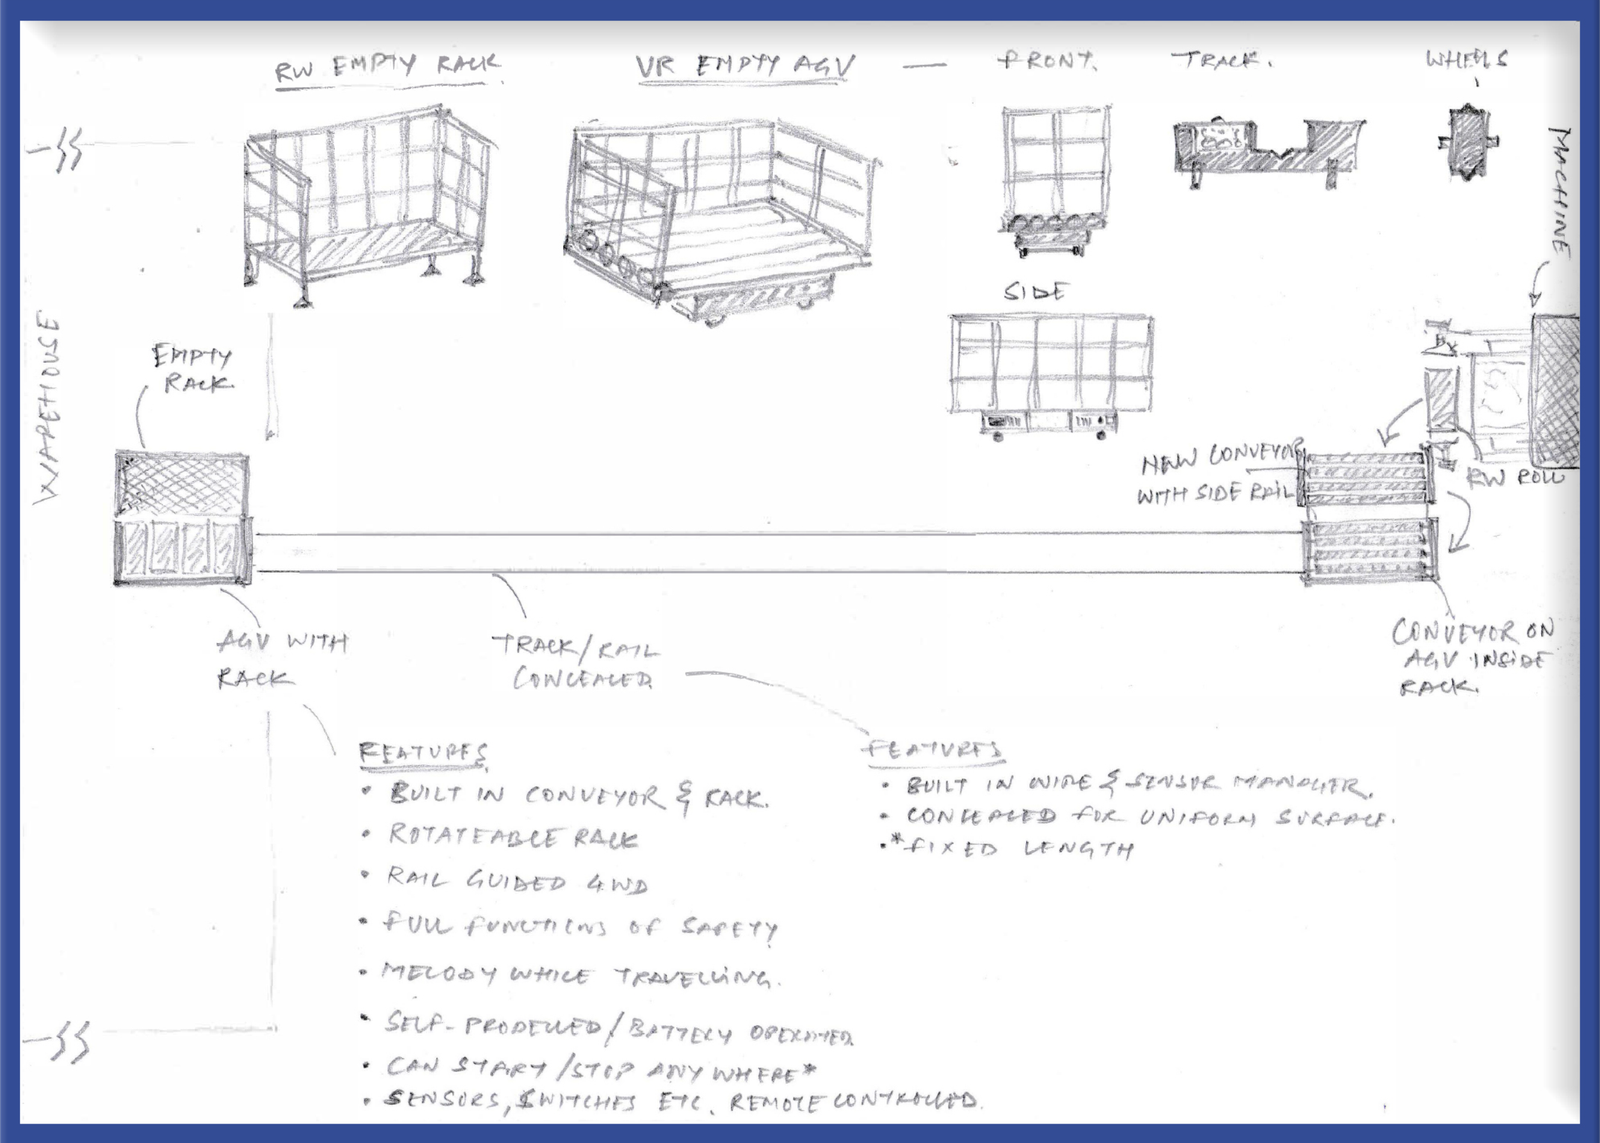 RW EMPTY RACK
VR EMPTY AGV — FRONT.
TRACK.
WHEELS
MACHINE
SIDE
WAREHOUSE
EMPTY
RACK
NEW CONVEYOR
WITH SIDE RAIL
RW ROLL
AGV WITH
RACK
TRACK/RAIL
CONCEALED
CONVEYOR ON
AGV INSIDE
RACK.
FEATURES
• BUILT IN CONVEYOR & RACK.
• ROTATEABLE RACK
• RAIL GUIDED 4WD
• FULL FUNCTIONS OF SAFETY
• MELODY WHILE TRAVELLING.
• SELF-PROPELLED/BATTERY OPERATED
• CAN START/STOP ANYWHERE*
• SENSORS, SWITCHES ETC. REMOTE CONTROLLED.
FEATURES
• BUILT IN WIRE & SENSOR MANAGER.
• CONCEALED FOR UNIFORM SURFACE.
•*FIXED LENGTH